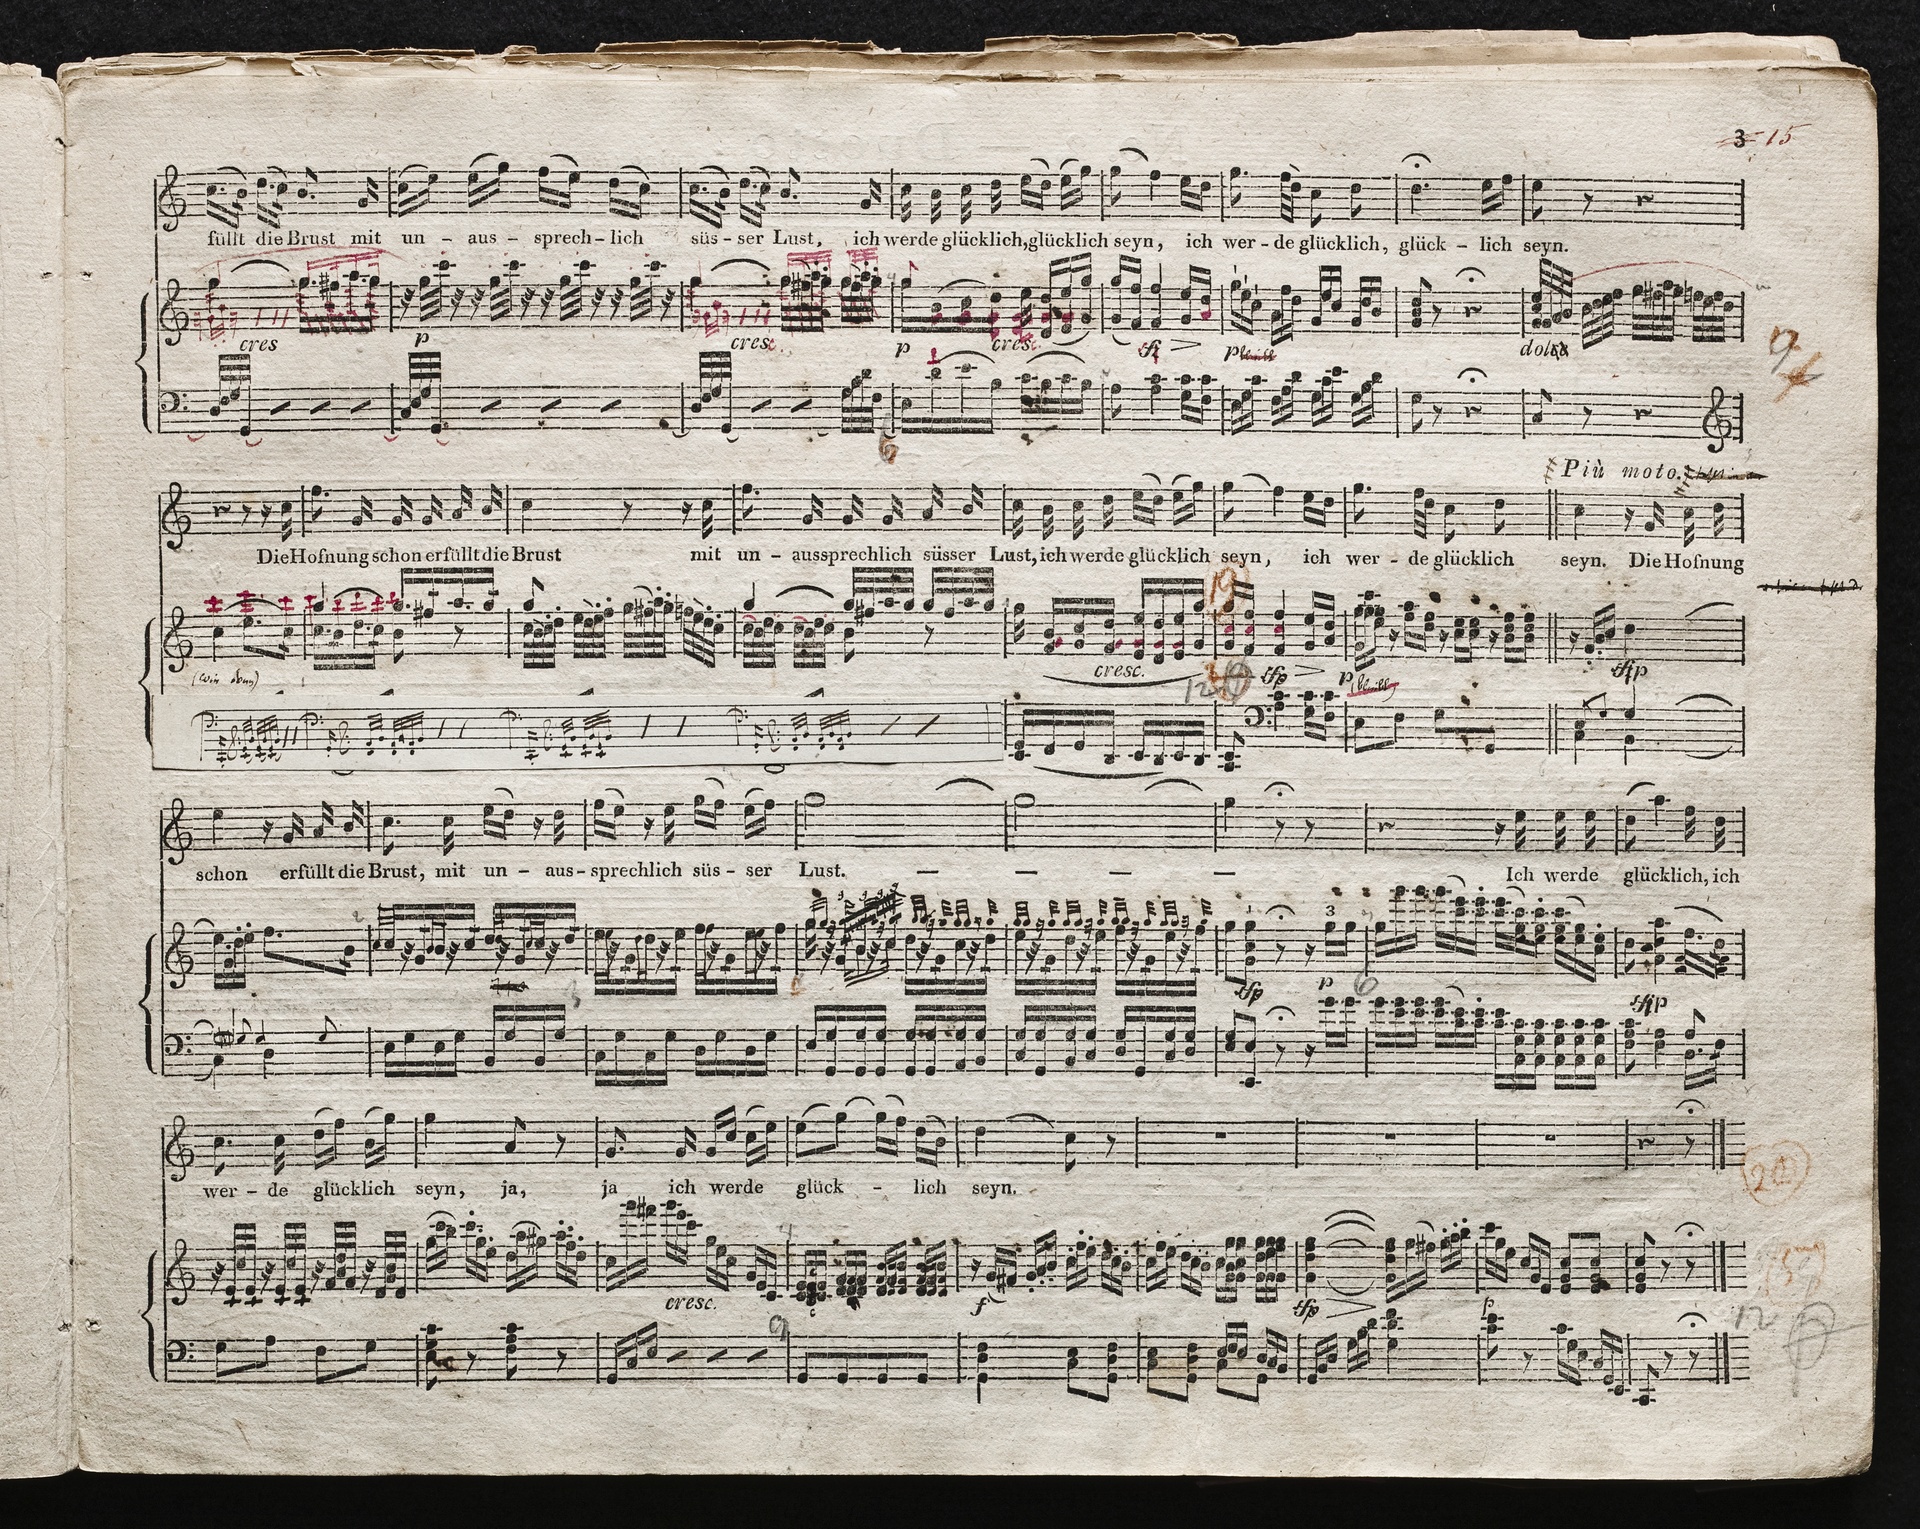 3 15
füllt die Brust mit un - aus - sprech - lich süs - ser Lust, ich werde glücklich, glücklich seyn, ich wer - de glücklich, glück - lich seyn.
cres p cresc. p cresc. sf > p dolce
Più moto.
Die Hofnung schon erfüllt die Brust mit un - aussprechlich süsser Lust, ich werde glücklich seyn, ich wer - de glücklich seyn. Die Hofnung
cresc. sfp > p sfp
schon erfüllt die Brust, mit un - aus - sprechlich süs - ser Lust. — — — — — Ich werde glücklich, ich
sfp p 3 6 sfp
wer - de glücklich seyn, ja, ja ich werde glück - lich seyn.
cresc. f sfp > p
9
12